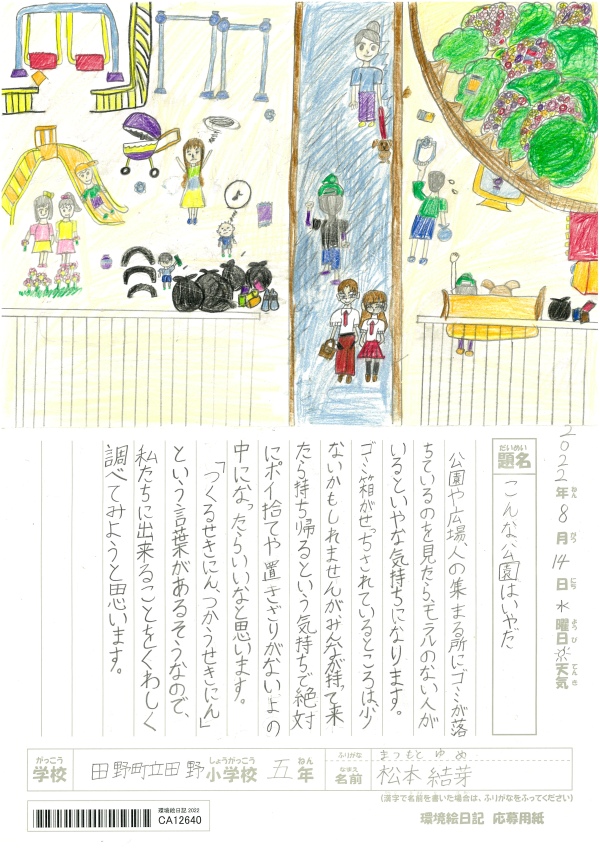 2022年8月14日水曜日☀天気
ねん がつ にち ようび てんき
だいめい
題名
こんな公園はいやだ
公園や広場、人の集まる所にゴミが落
ちているのを見たら、モラルのない人が
いるといやな気持ちになります。
ゴミ箱がせっちされているところは、少
ないかもしれませんがみんなが持って来
たら持ち帰るという気持ちで絶対
にポイ捨てや置きざりがないよの
中になったらいいなと思います。
「つくるせきにん、つかうせきにん」
という言葉があるそうなので、
私たちに出来ることをくわしく
調べてみようと思います。
がっこう
学校
田野町立田野
しょうがっこう
小学校
五
ねん
年
ふりがな
まつもと ゆめ
なまえ
名前
松本 結芽
(漢字で名前を書いた場合は、ふりがなをふってください)
環境絵日記 2022
CA12640
環境絵日記 応募用紙